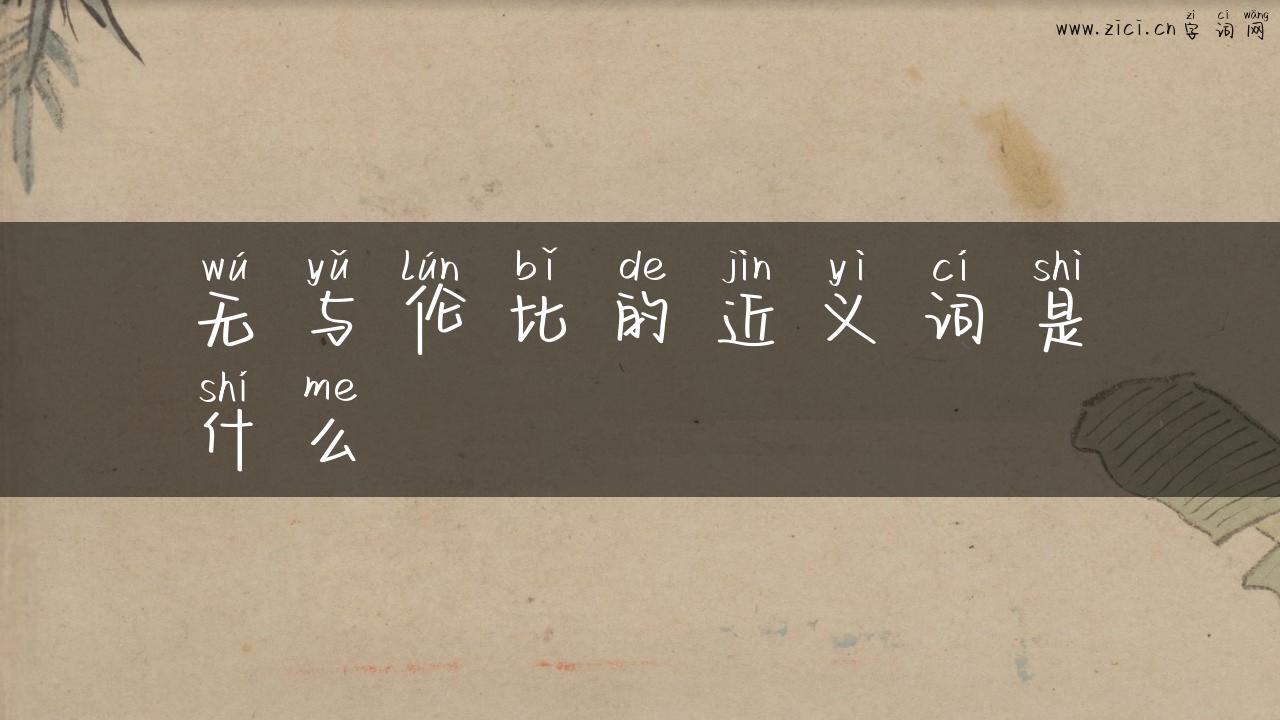 zì cí wǎng
www.zici.cn 字词网
wú yǔ lún bǐ de jìn yì cí shì
无与伦比的近义词是
shí me
什么